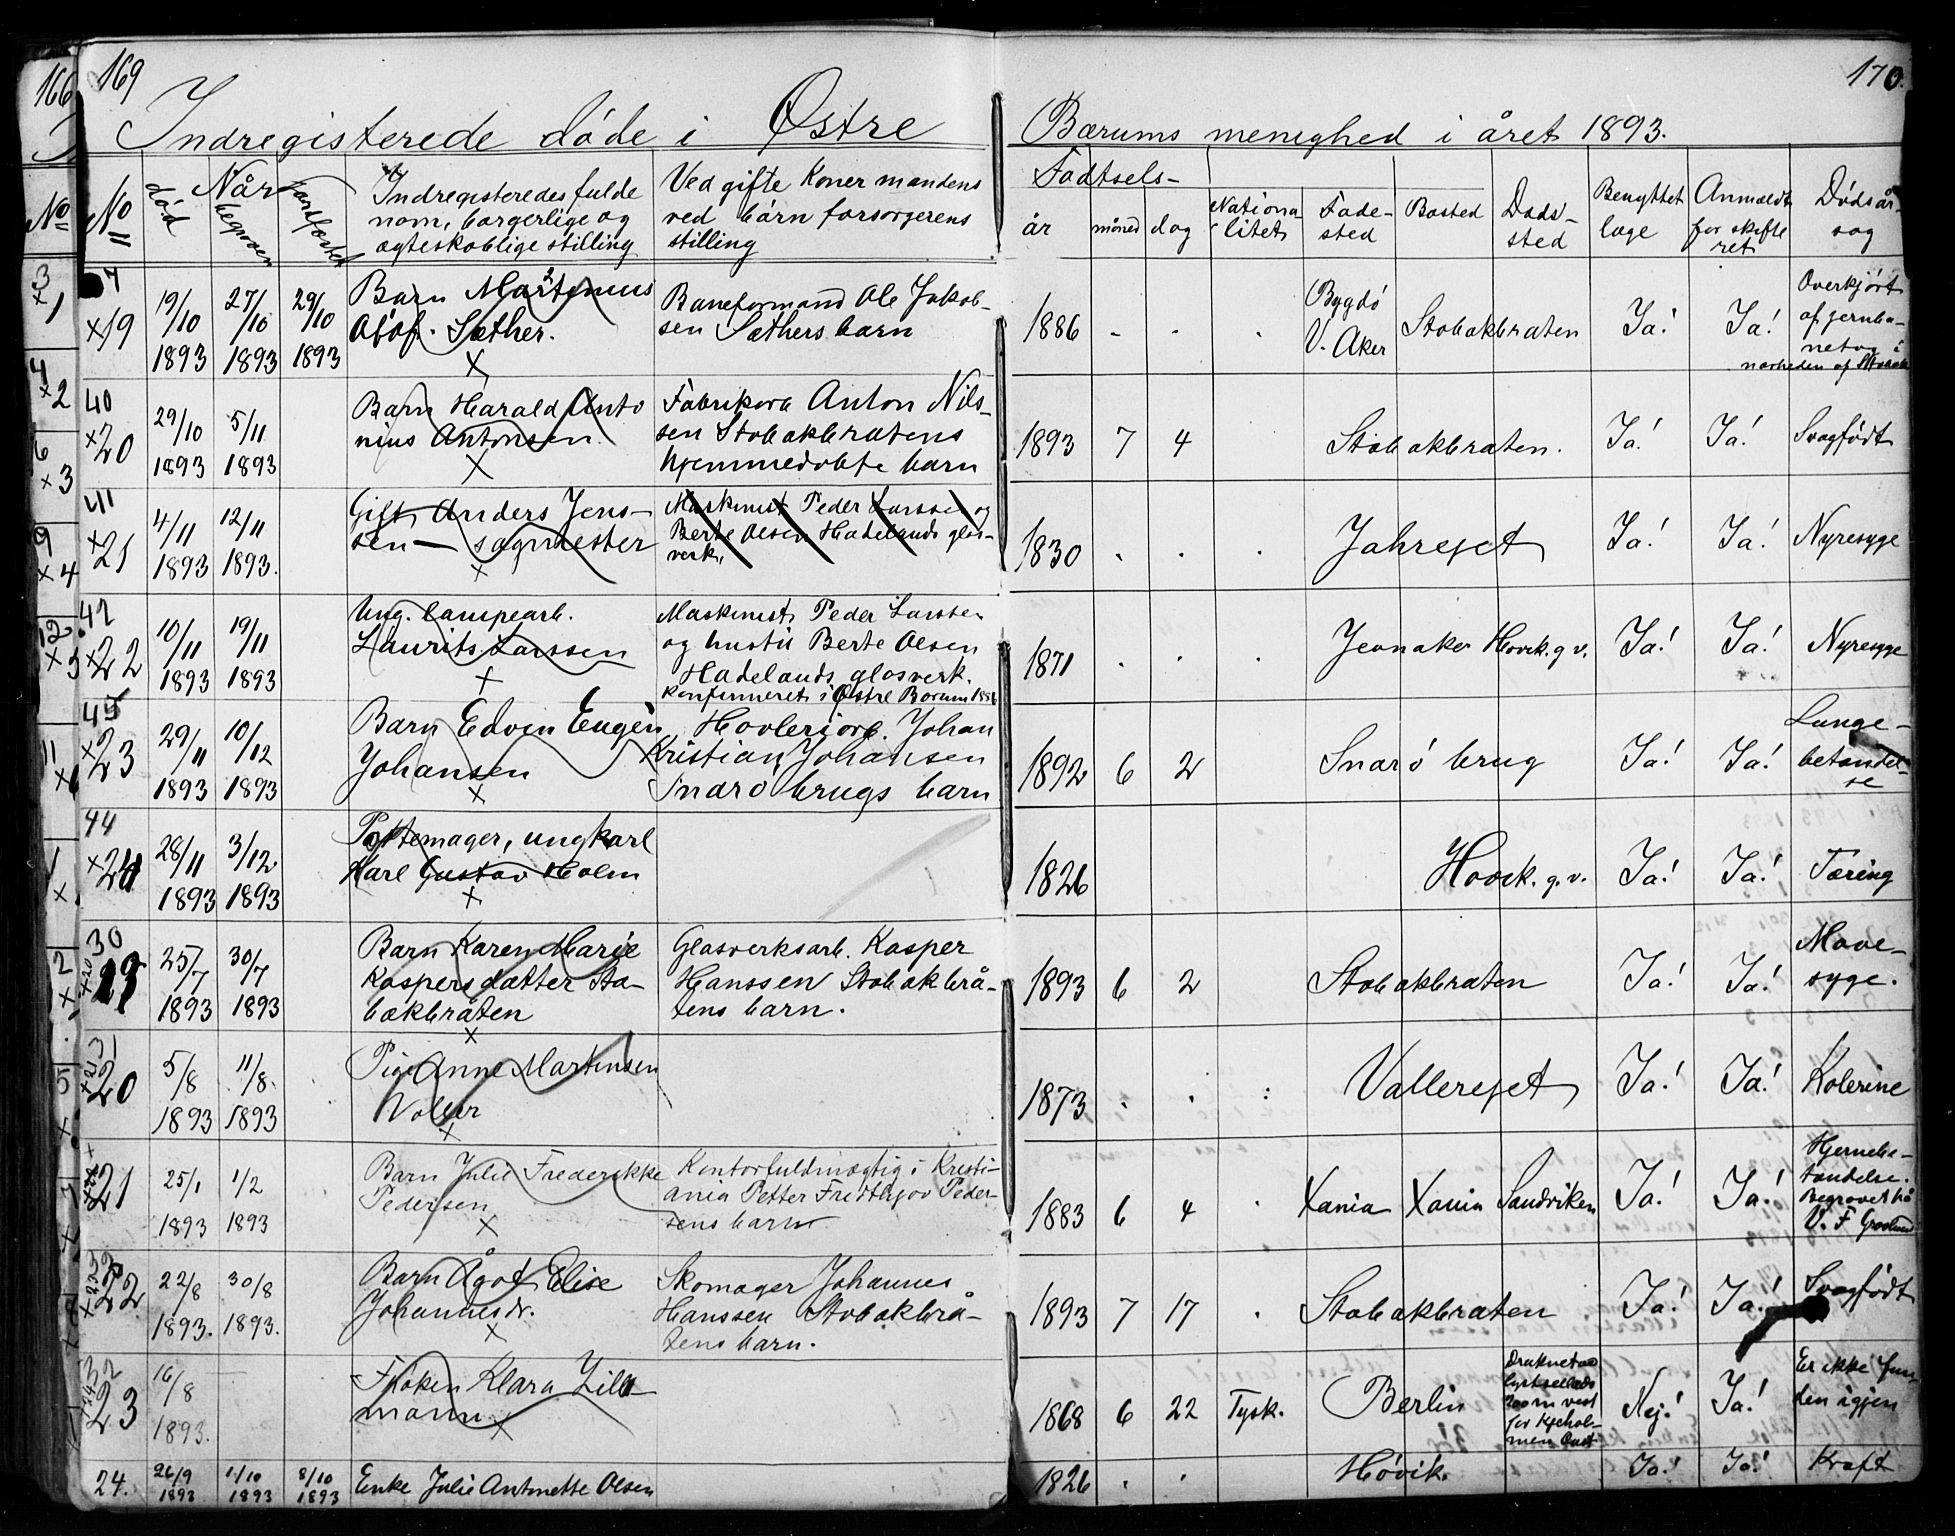 166 169
170.
Indregisterede døde i Østre Bærums menighed i året 1893.
№ № Når
død begraven jordfæstet
Indregisteredes fulde
navn, borgerlige og
ægteskablige stilling
Ved gifte Koner mandens
ved børn forsørgerens
stilling
Fødtsels-
år måned dag
Nationa-
litet
Føde-
sted
Bosted
Døds-
sted
Benyttet
læge
Anmældt
for skifte
ret
Dødsår-
sag
×19
19/10 1893
27/10 1893
29/10 1893
Barn Martinius
Olof. Sæther.
×
Baneformand Ole Jakob-
sen Sæthers barn
1886 - . .
Bygdø
V. Aker
Stabækbråten
Ja! Ja!
Overkjørt
af jernba-
netog i
nærheden af Stabæk
40
×20
29/10 1893
5/11 1893
Barn Harald Anto
nius Antonsen.
×
Fabrikarb Anton Nils-
sen Stabækbråtens
hjemmedøbte barn
1893 7 4
Stabækbråten.
Ja! Ja!
Svagfødt
41
×21
4/11 1893
12/11 1893.
Gift Anders Jens-
sen — sagmester
×
Maskinist Peder Larssen og
Berte Olsen Hadelands glas-
verk.
1830 . . .
Jahreget
Ja! Ja!
Nyresyge
42
×22
10/11 1893
19/11 1893
Ung. lampearb.
Laurits Larssen
×
Maskinist Peder Larssen
og hustru Berte Olsen
Hadelands glasverk.
Konfirmeret i Østre Bærum 1886
1871 . . .
Jevnaker Høvik. g v.
Ja! Ja!
Nyresyge
45
×23
29/11 1893
10/12 1893
Barn Edvin Eugèn
Johansen
×
Høvleriarb. Johan
Kristian Johansen
Snarø brugs barn
1892 6 2
Snarø brug
Ja! Ja!
Lunge-
betændel-
se
44
×24
28/11 1893
3/12 1893
Pottemager, ungkarl
Karl Gustav Holm
×
1826
Høvik. g. v.
Ja! Ja!
Tæring
30
×20 19
25/7 1893
30/7 1893
Barn Karen Marie
Kaspersdatter Sta-
bækbråten
×
Glasverksarb. Kasper
Hanssen Stabækbrå-
tens barn.
1893 6 2
Stabækbråten
Ja! Ja!
Mave-
syge.
31
×21 20
5/8 1893
11/8. 1893
Pige Anne Martinsen
Voller
×
1873 . . :
Vallereget
Ja! Ja!
Kolerine
21
25/1 1893
1/2 1893
Barn Julie Frederikke
Pedersen
×
Kontorfuldmægtig i Kristi-
ania Petter Fredthjov Peder-
sens barn
1883 6 4 .
Xania Xania Sandviken
Ja! Ja!
Hjernebe-
tændelse.
Begravet på
V. F Gravlund
22
22/8 1893.
30/8 1893.
Barn Ågot Elise
Johannesdr.
×
Skomager Johannes
Hanssen Stabækbrå-
tens barn.
1893 7 17 .
Stabækbråten
Ja! Ja!
Svagfødt
32
23
16/8 1893.
Frøken Klara Zill
mann
×
1868 6 22 Tysk.
Berlin
Druknet ved
lystseilads
200 m vest
for Kjehol-
men
Nej! Ja!
Er ikke fun-
den igjen
24.
26/9 1893
1/10 1893
8/10 1893
Enke Julie Antonette Olsen
1826 . .
Høvik.
Ja! Ja!
Kræft